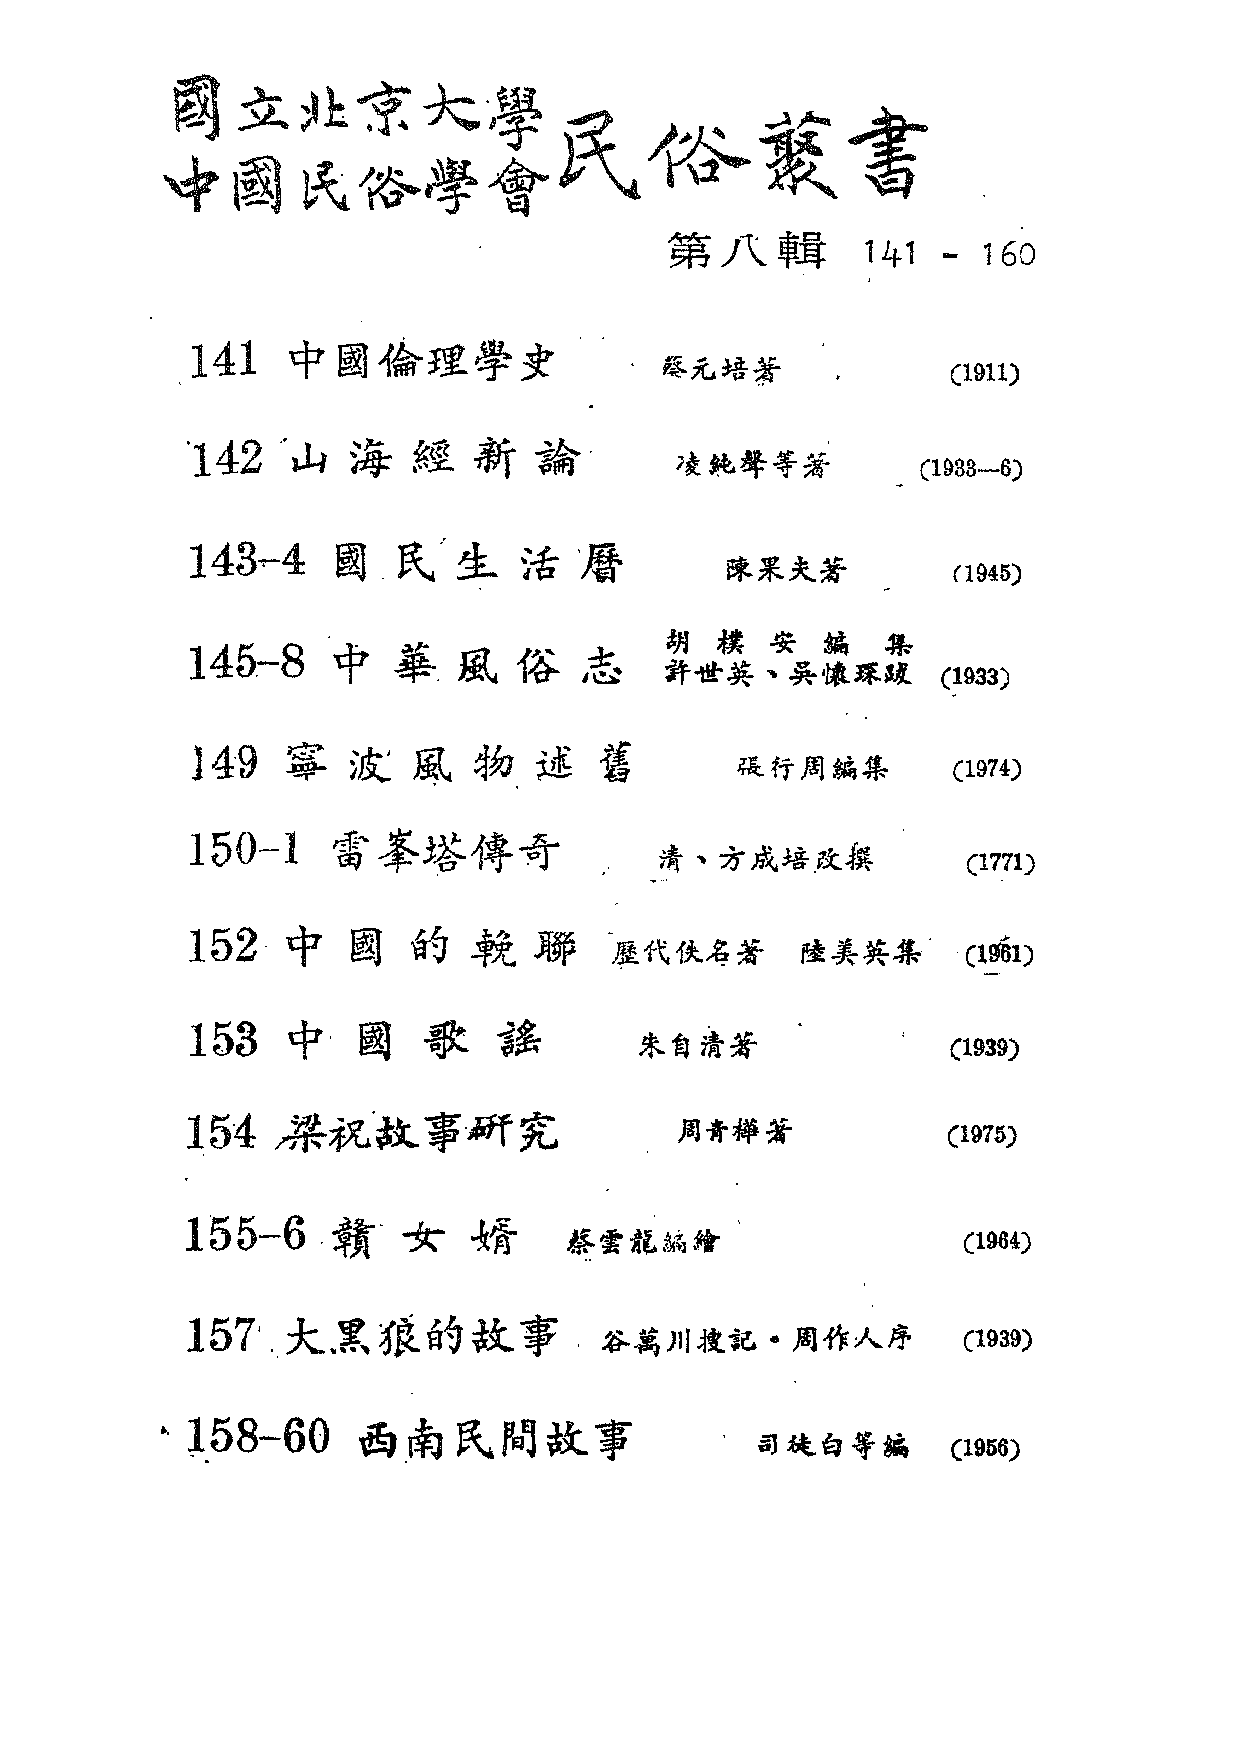 國立北京大學
中國民俗學會
民俗叢書
第八輯 141 - 160
141 中國倫理學史 蔡元培著 (1911)
142 山海經新論 凌純聲等著 (1933—6)
143-4 國民生活曆 陳果夫著 (1945)
145-8 中華風俗志 胡樸安編集
許世英、吳懷琛跋 (1933)
149 寧波風物述舊 張行周編集 (1974)
150-1 雷峯塔傳奇 清、方成培改撰 (1771)
152 中國的輓聯 歷代佚名著 陸美英集 (1961)
153 中國歌謠 朱自清著 (1939)
154 梁祝故事研究 周青樺著 (1975)
155-6 贛女婿 蔡雲龍編繪 (1964)
157 大黑狼的故事 谷萬川搜記·周作人序 (1939)
158-60 西南民間故事 司徒白等編 (1956)